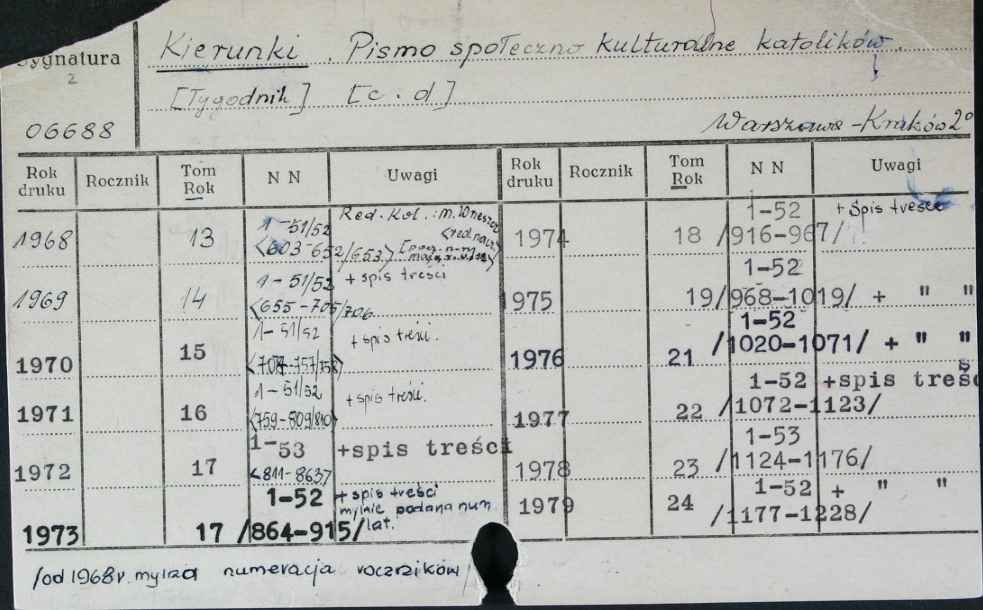 Sygnatura
2
06688
Kierunki. Pismo społeczno kulturalne katolików.
[Tygodnik] [c.d]
Warszawa-Kraków 2°
Rok druku Rocznik Tom Rok N N Uwagi Rok druku Rocznik Tom Rok N N Uwagi
1968 13 1-51/52 <603-652/653.> Red. Kol.: m.
1969 14 1-51/52 <655-705/706 + spis treści
1970 15 1-51/52 + spis treści.
1971 16 1-51/52 <759-809/810> + spis treści.
1972 17 1-53 <811-863> +spis treści
1973 17 1-52 /864-915/ + spis treści mylnie podana num. lat.
1974 18 1-52 /916-967/ + spis treści
1975 19 1-52 /968-1019/ + " "
1976 21 1-52 /1020-1071/ + " "
1977 22 1-52 /1072-1123/ +spis treśc
1978 23 1-53 /1124-1176/
1979 24 1-52 /1177-1228/ + " "
/od 1968r. mylna numeracja roczników/